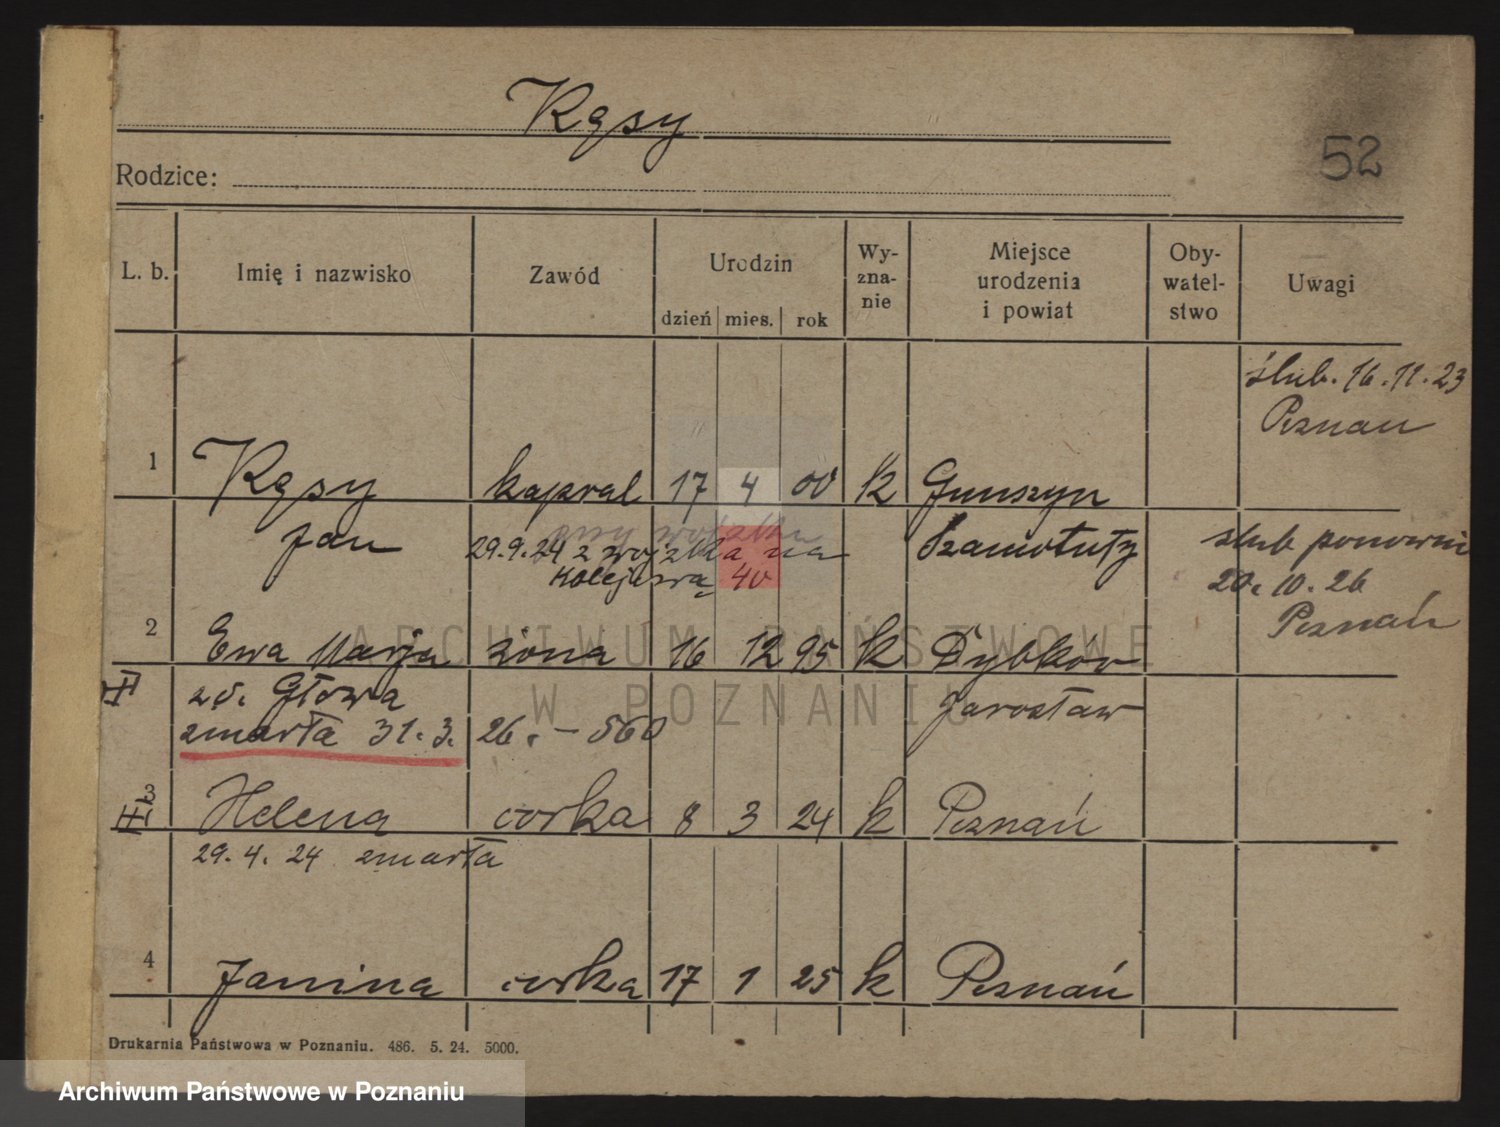 Kąsy
52
Rodzice:
L. b. Imię i nazwisko Zawód Urodzin dzień mies. rok Wy-zna-nie Miejsce urodzenia i powiat Oby-watel-stwo Uwagi
ślub. 16.11.23
Poznań
1 Kąsy kapral 17 4 00 k Gunszyn
Jan 29.9.24 z wojska na Szamotuły ślub ponowni
kolejową 40 20. 10. 26
Poznań
2 Ewa Marja żona 16 12 95 k Dybków
zd. Głowa Jarosław
zmarła 31.3. 26. - 560
3 Helena córka 8 3 24 k Poznań
29. 4. 24 zmarła
4 Janina córka 17 1 25 k Poznań
Drukarnia Państwowa w Poznaniu. 486. 5. 24. 5000.
ARCHIWUM PAŃSTWOWE
W POZNANIU
Archiwum Państwowe w Poznaniu